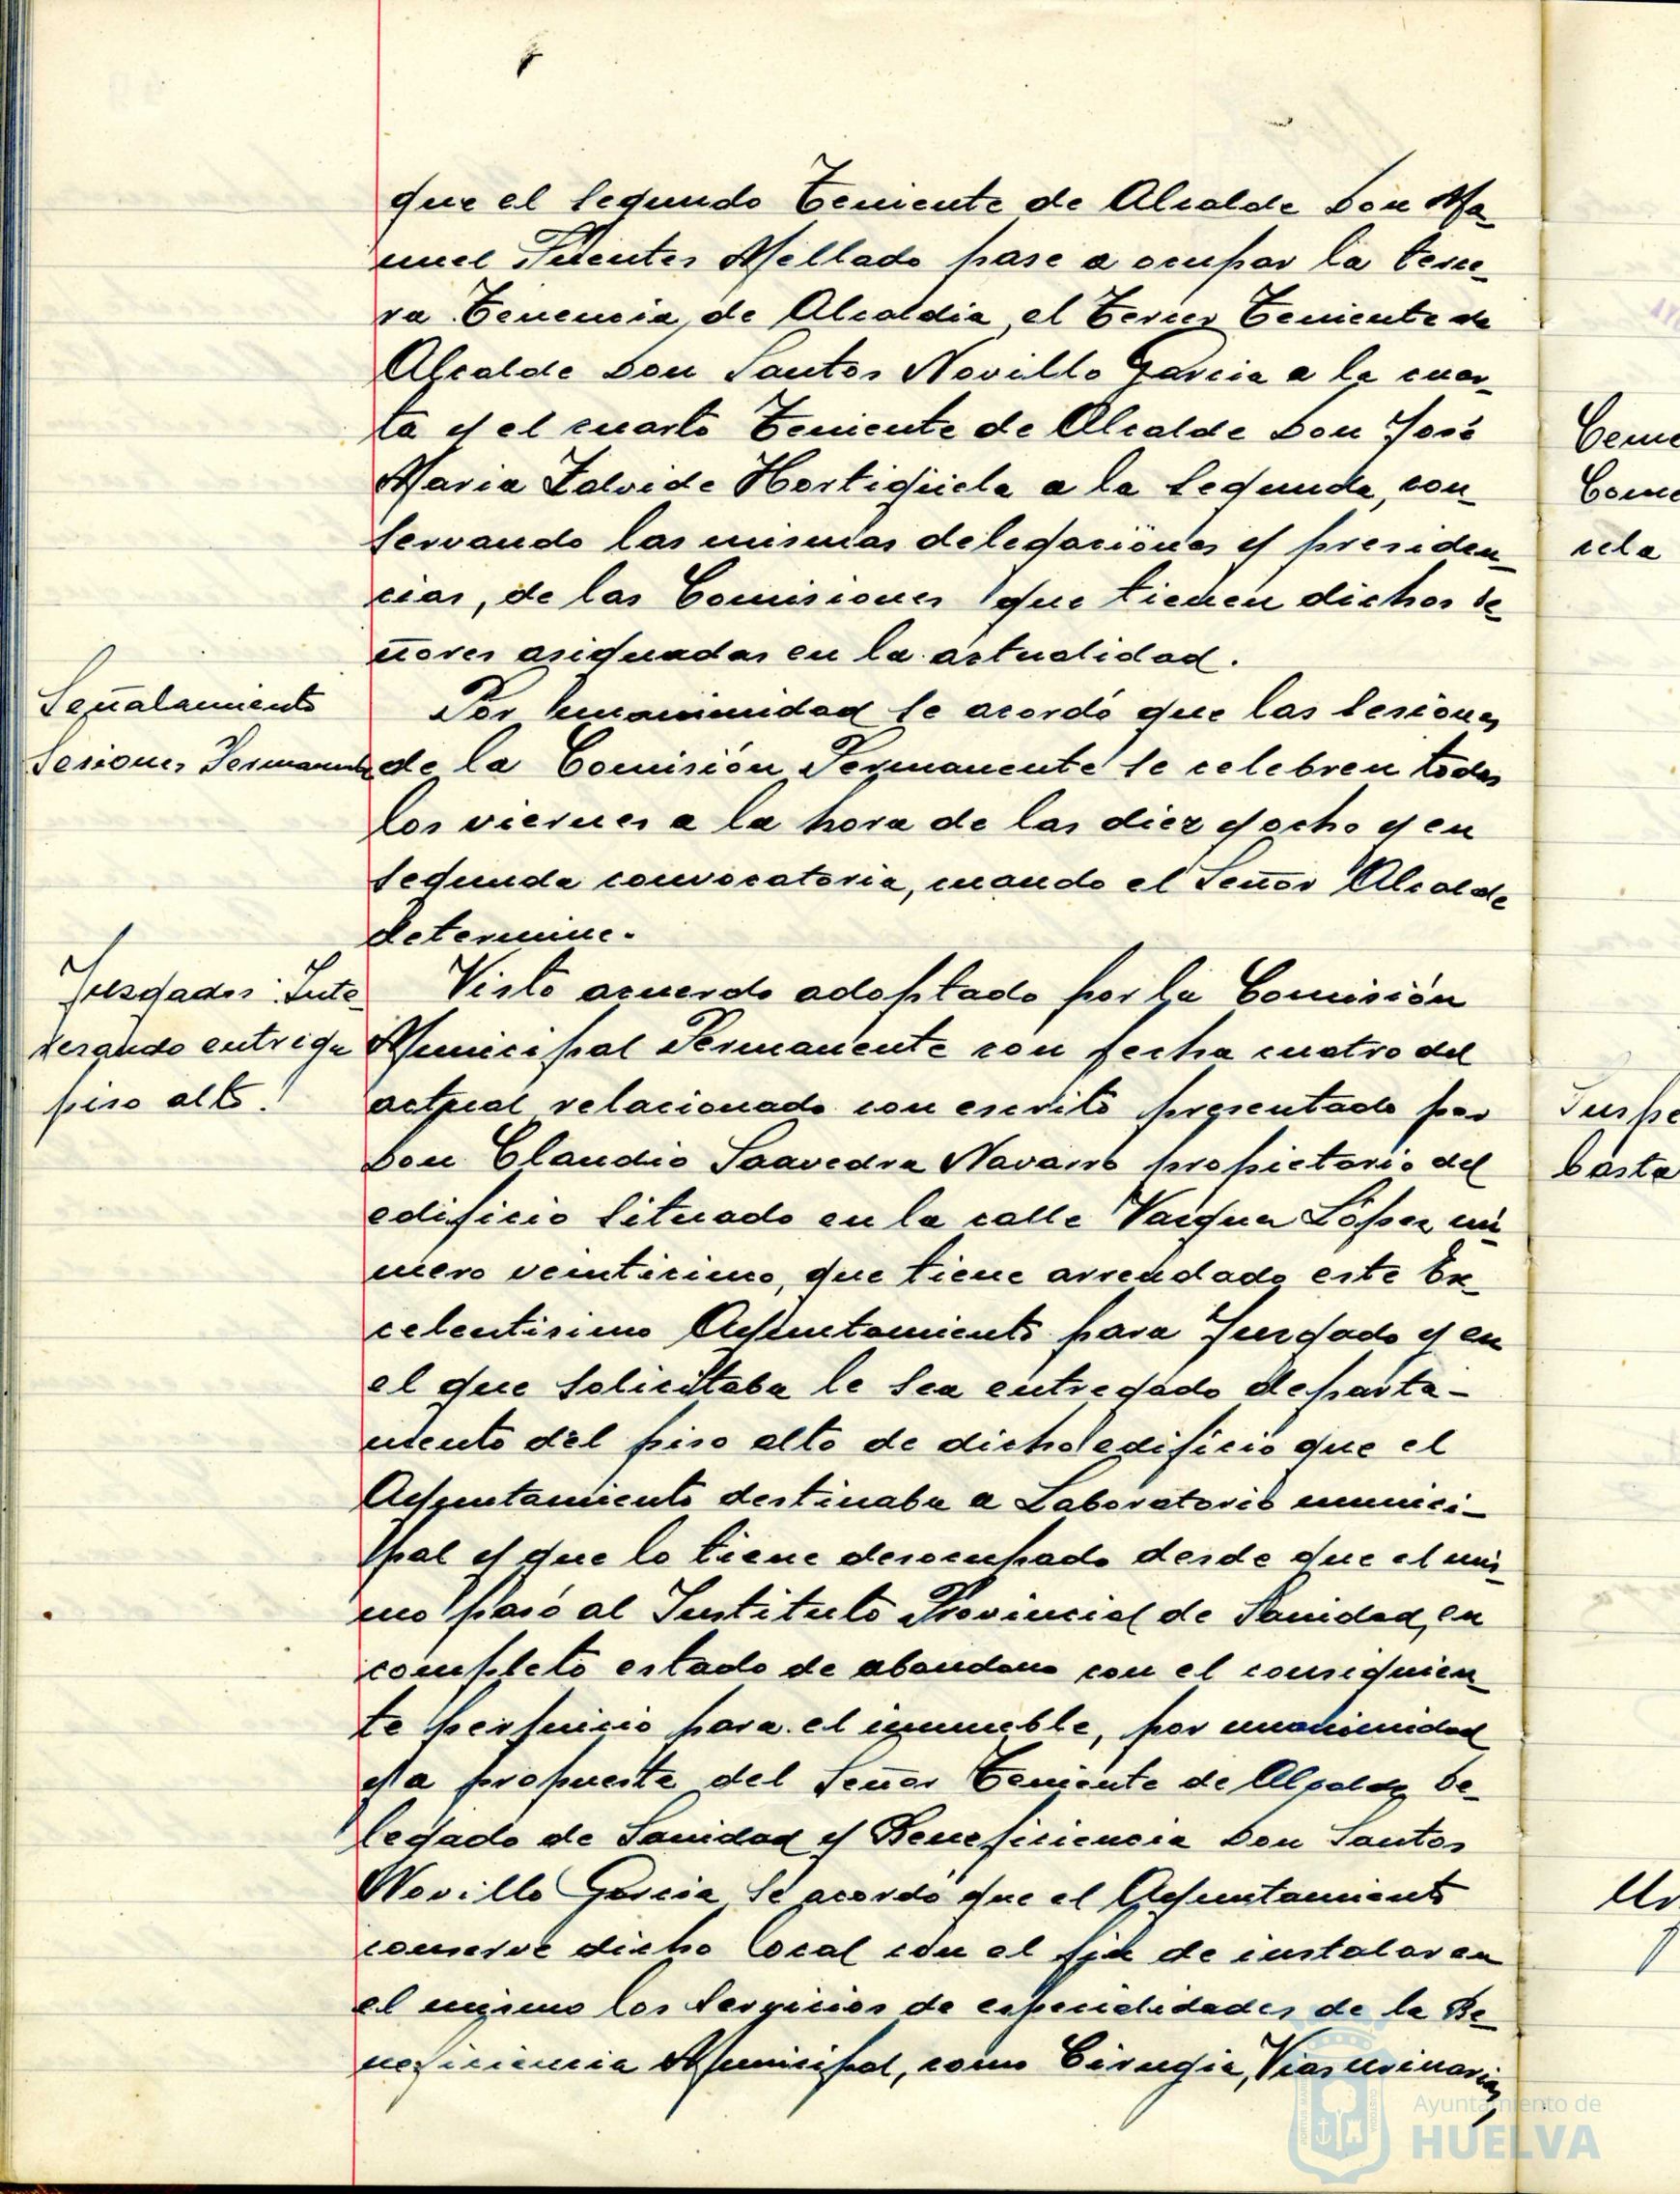 que el Segundo Teniente de Alcalde Don Ma_
nuel Fuentes Mellado pase a ocupar la terce_
ra Tenencia de Alcaldia, el Tercer Teniente de
Alcalde Don Santos Novillo Garcia a la cuar_
ta y el cuarto Teniente de Alcalde Don José
Maria Zalvide Hortigüela a la segunda, con_
servando las mismas delegaciones y presiden_
cias, de las Comisiones que tienen dichos se_
ñores asignadas en la actualidad.
Señalamiento
Sesiones Permanente
Por unanimidad se acordó que las sesiones
de la Comisión Permanente se celebren todos
los viernes a la hora de las diez y ocho y en
segunda convocatoria, cuando el Señor Alcalde
determine.
Juzgados: Inte_
resando entrega
piso alto.
Visto acuerdo adoptado por la Comisión
Municipal Permanente con fecha cuatro del
actual relacionado con escrito presentado por
Don Claudio Saavedra Navarro propietario del
edificio situado en la calle Vazquez López nú_
mero veinticinco, que tiene arrendado este Ex_
celentisimo Ayuntamiento para Juzgado y en
el que solicitaba le sea entregado departa-
mento del piso alto de dicho edificio que el
Ayuntamiento destinaba a Laboratorio munici-
pal y que lo tiene desocupado desde que el mis_
mo pasó al Instituto Provincial de Sanidad, en
completo estado de abandono con el consiguien_
te perjuicio para el inmueble, por unanimidad
y a propuesta del Señor Teniente de Alcalde De_
legado de Sanidad y Beneficiencia Don Santos
Novillo Garcia se acordó que el Ayuntamiento
conserve dicho local con el fin de instalar en
el mismo los servicios de especialidades de la Be_
neficiencia Municipal, como Cirugia, Vias urinarias,
Ayuntamiento de
HUELVA